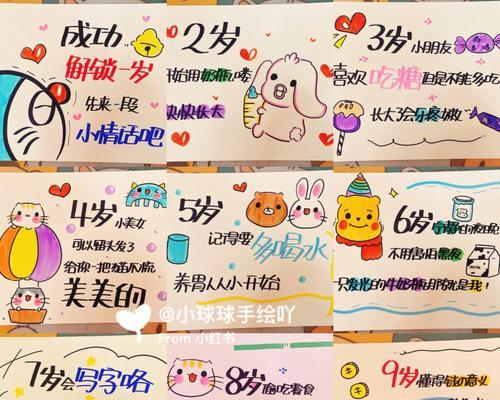 成功
解锁一岁
先来一段
小情话吧
2岁
开始用奶瓶喽
快快长大
3岁小朋友
喜欢吃糖但是不能多吃
长大了会牙疼嗷
4岁小美女
可以留头发了
给你一把猫爪梳
美美的
5岁
记得要
多喝水
养胃从小开始
6岁
不用害怕黑夜
只发光的牛奶瓶
就是我!
7岁会写字咯
8岁偷吃零食
9岁懂得钱的意义
@小球球手绘吖
From 小红书